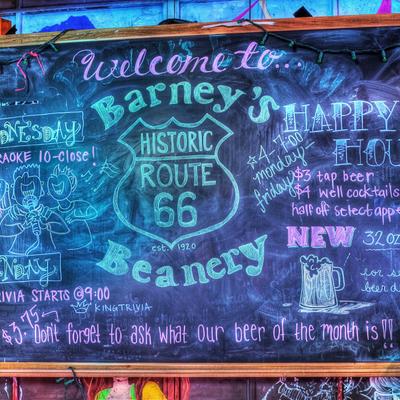 Welcome to...
Barney's
HISTORIC
ROUTE
66
est. 1920
Beanery
DNESDAY
RAOKE 10-Close!
NDAY
RIVIA STARTS @ 9:00
KINGTRIVIA
HAPPY
HOU
$4-7:00
monday-
friday
$3 tap beer
$4 well cocktails
half off select appe
NEW 32 oz
beer
$3.75
Don't forget to ask what our beer of the month is!!